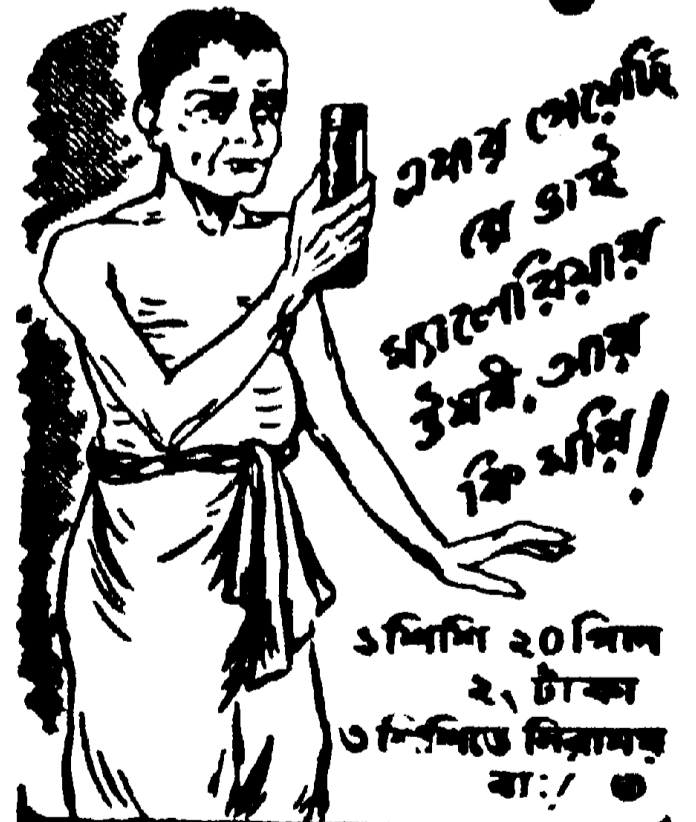 এবার পেয়েছি
রে ভাই
ম্যালেরিয়ার
ঔষধী, আর
কি মরি!
১ শিশি ২০ পিল
২৲ টাকা
৩ শিশিতে নিরাময়
বাঃ!